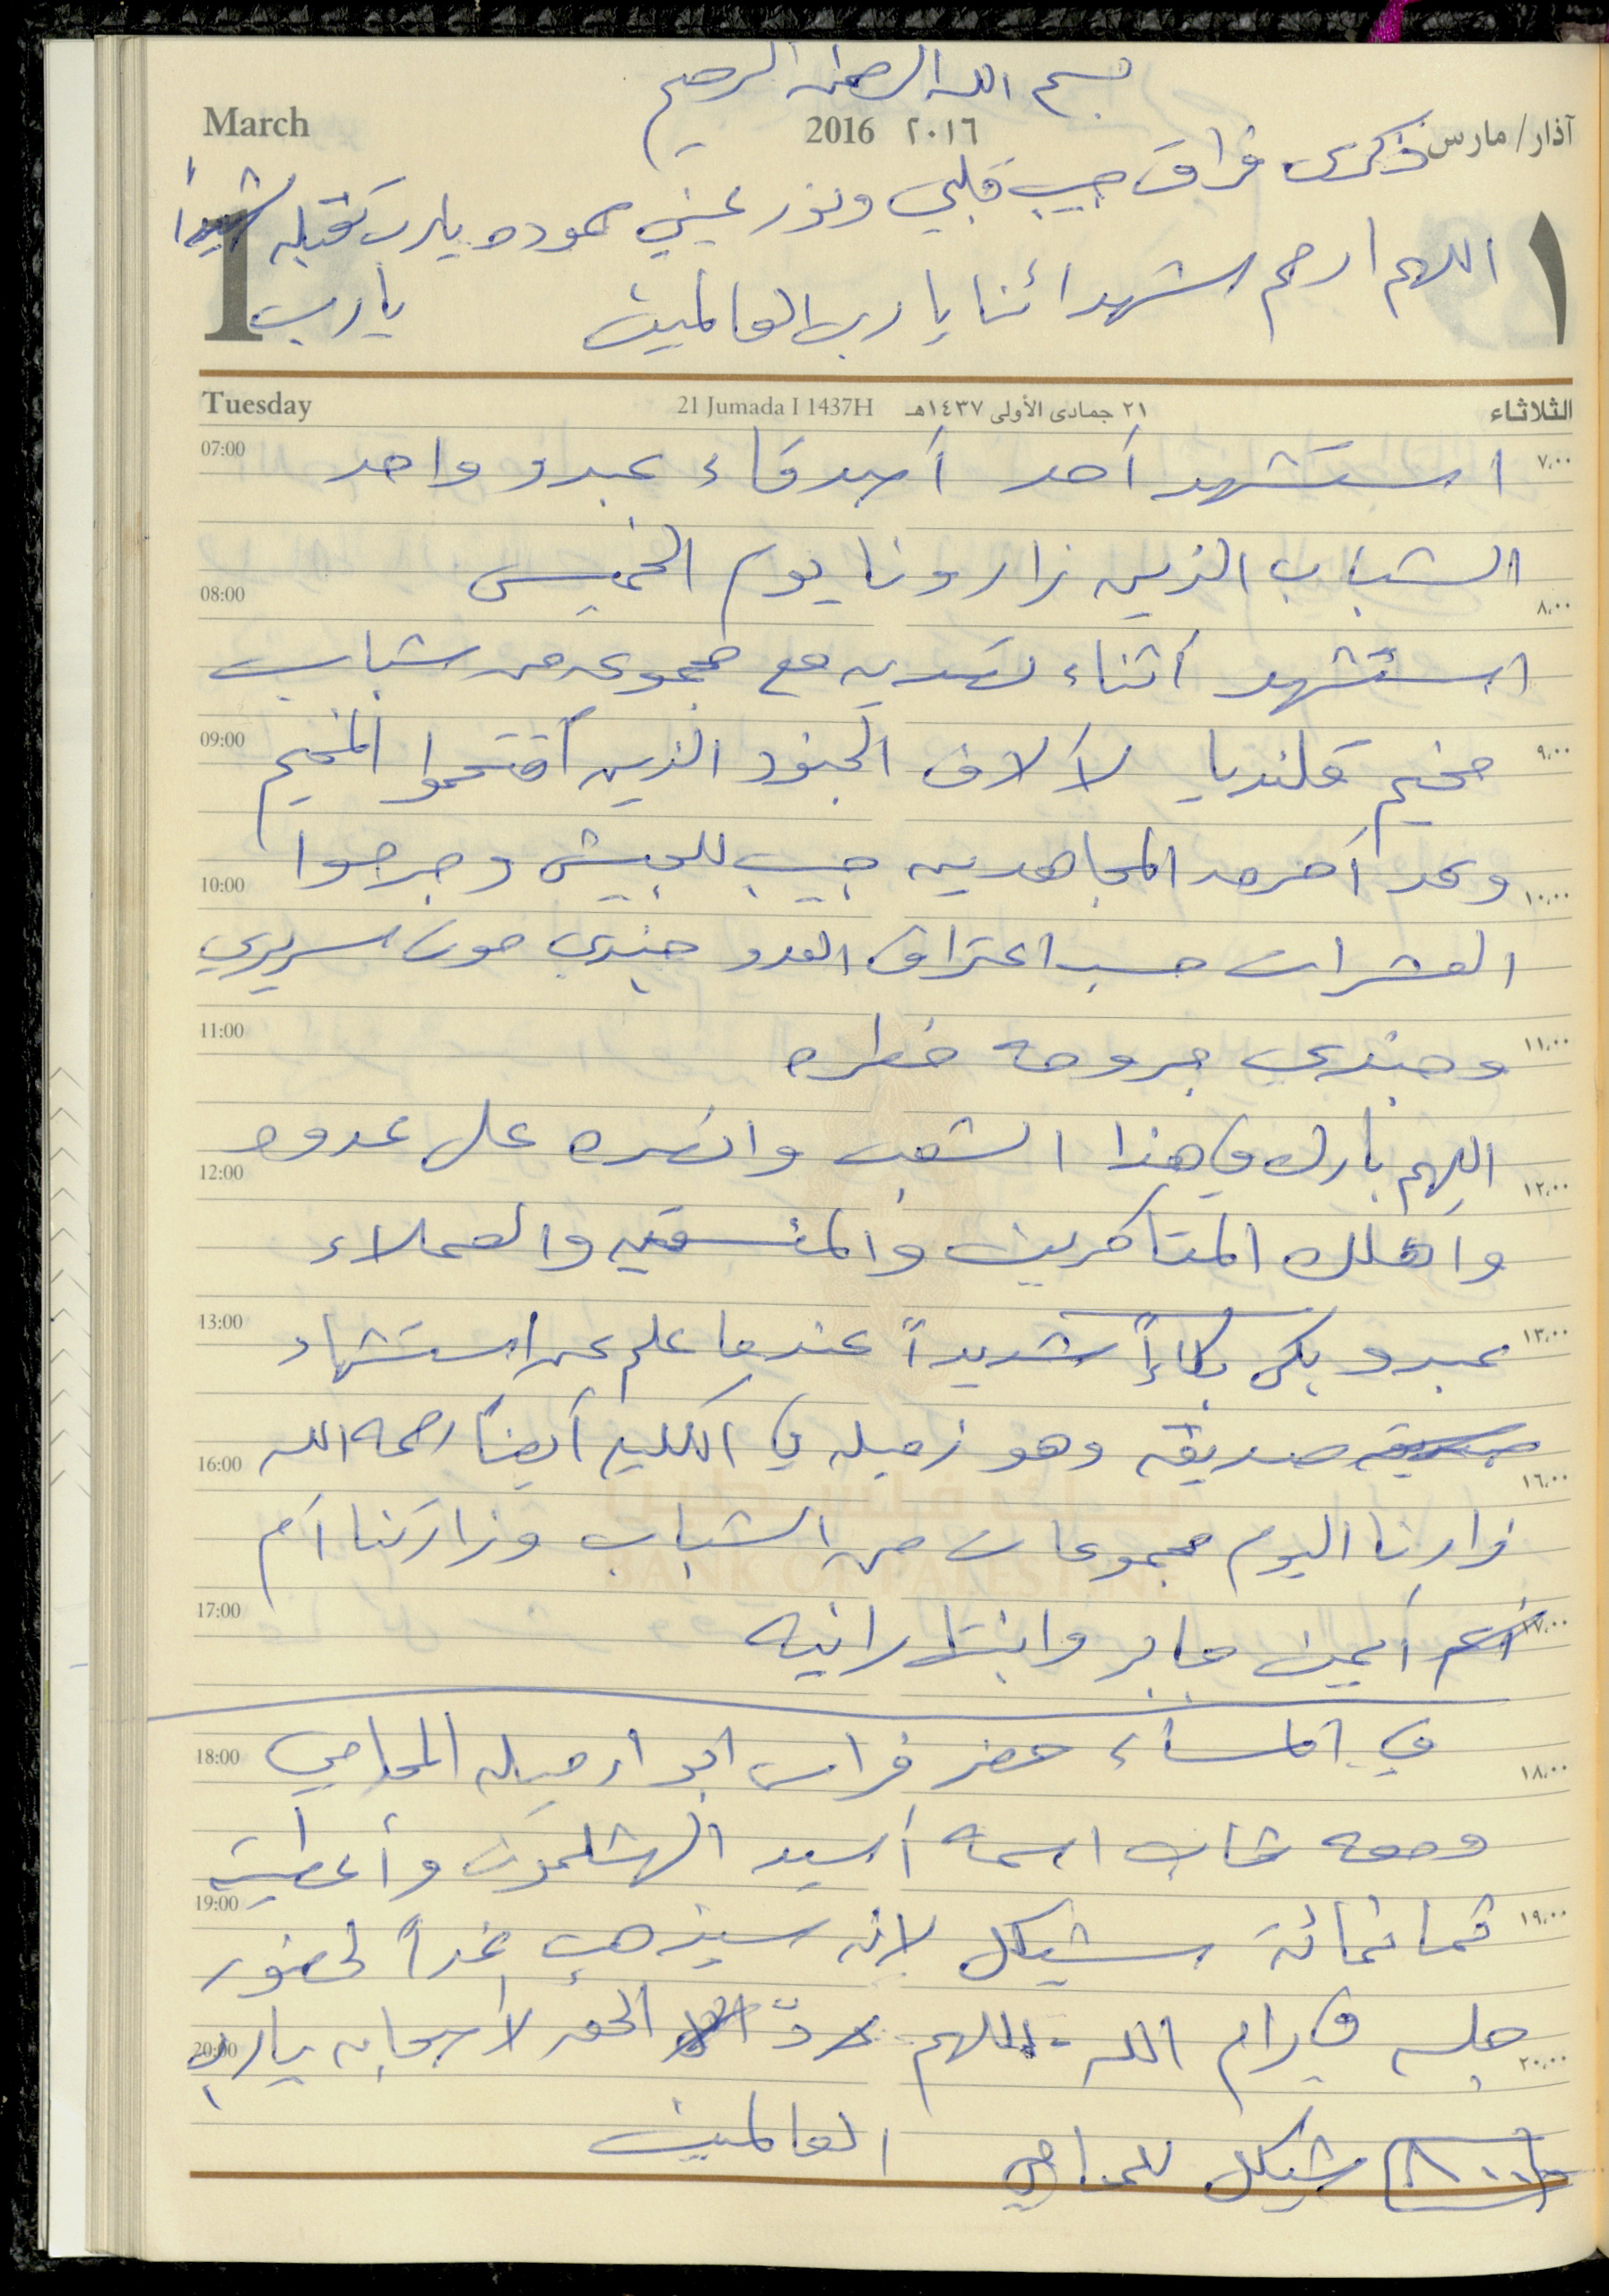 بسم الله الرحمن الرحيم
March 2016 ٢٠١٦ آذار/ مارس
ذكرى فراق حبيب قلبي ونور عيني حموده يارب تقبله شهيداً
1 ١
اللهم ارحم شهدائنا يا رب العالمين يارب
Tuesday 21 Jumada I 1437H ٢١ جمادى الأولى ١٤٣٧هـ الثلاثاء
07:00 استشهد أحد أصدقاء عبدو واحد ٧،٠٠
الشباب الذين زارونا يوم الخميس
08:00 ٨،٠٠
استشهد أثناء تصديه مع مجموعه من شباب
09:00 مخيم قلنديا لآلاف الجنود الذين أقتحموا المخيم ٩،٠٠
10:00 وقد أحرق المجاهدين جيب للجيش وجرحوا ١٠،٠٠
العشرات حسب اعتراف العدو جندي موت سريري
11:00 وجندي جروحه خطره ١١،٠٠
اللهم بارك في هذا الشعب وانصره على عدوه
12:00 ١٢،٠٠
واهلك المتآمرين والمنسقين والعملاء
13:00 عبدو بكى بكاءاً شديداً عندما علم عن استشهاد ١٣،٠٠
صديقه وهو زميله في الكليه أيضاً رحمه الله
16:00 ١٦،٠٠
زارنا اليوم مجموعات من الشباب وزارتنا أم
BANK OF PALESTINE
17:00 أيمن جابر وابنتها رانيه ١٧،٠٠
في المساء حضر فراس ابو ارميله المحامي
18:00 ١٨،٠٠
ومعه شاب اسمه أسيد الهشلمون وأعطيته
19:00 ثمانمائة شيكل لانه سيذهب غداً لحضور ١٩،٠٠
جلسه في رام الله - اللهم ردّ الحق لأصحابه يارب
20:00 ٢٠،٠٠
العالمين
٨٠٠ شيكل للمحامي